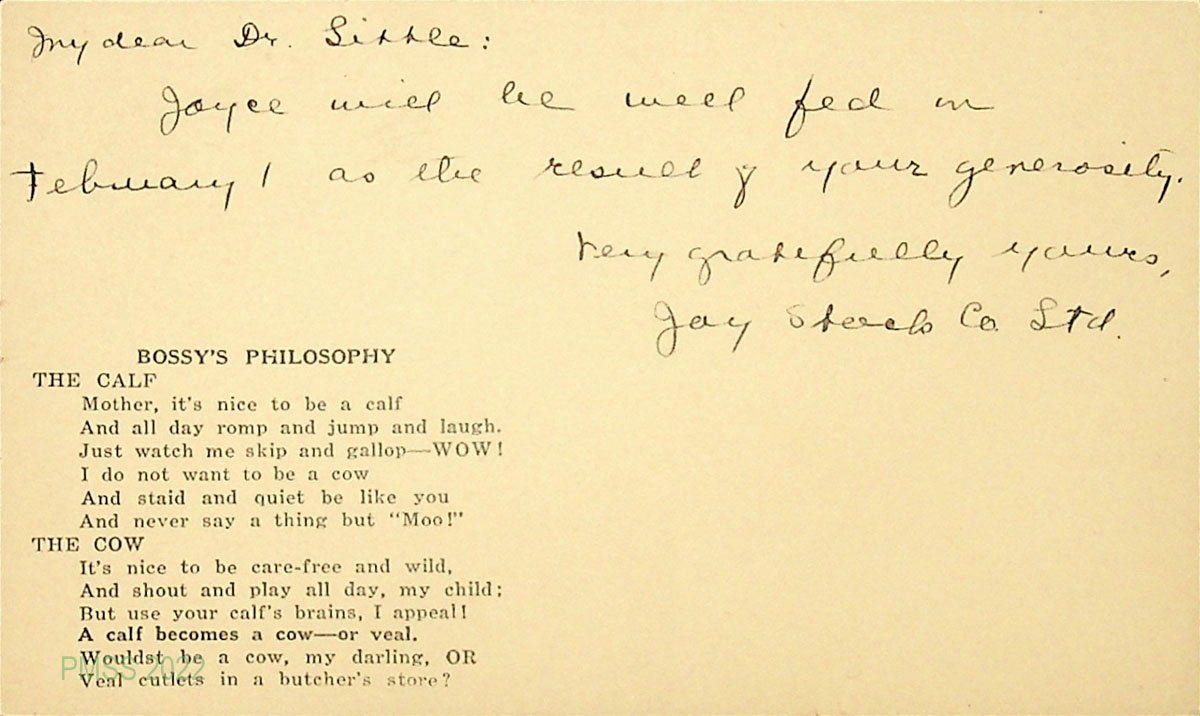 My dear Dr. Little:
Joyce will be well fed on
February 1 as the result of your generosity.
Very gratefully yours,
Joy Stock Co. Ltd.
BOSSY'S PHILOSOPHY
THE CALF
Mother, it's nice to be a calf
And all day romp and jump and laugh.
Just watch me skip and gallop—WOW!
I do not want to be a cow
And staid and quiet be like you
And never say a thing but "Moo!"
THE COW
It's nice to be care-free and wild,
And shout and play all day, my child;
But use your calf's brains, I appeal!
A calf becomes a cow—or veal.
Wouldst be a cow, my darling, OR
Veal cutlets in a butcher's store?
PMSS 2022